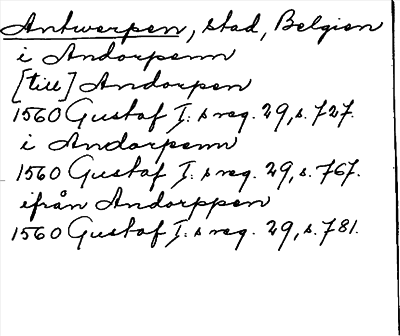 Antwerpen, stad, Belgien
i Andorpenn
[till] Andorpen
1560 Gustaf I:s reg. 29, s. 727.
i Andorpenn
1560 Gustaf I:s reg. 29, s. 767.
ifrån Andorppen
1560 Gustaf I:s reg. 29, s. 781.